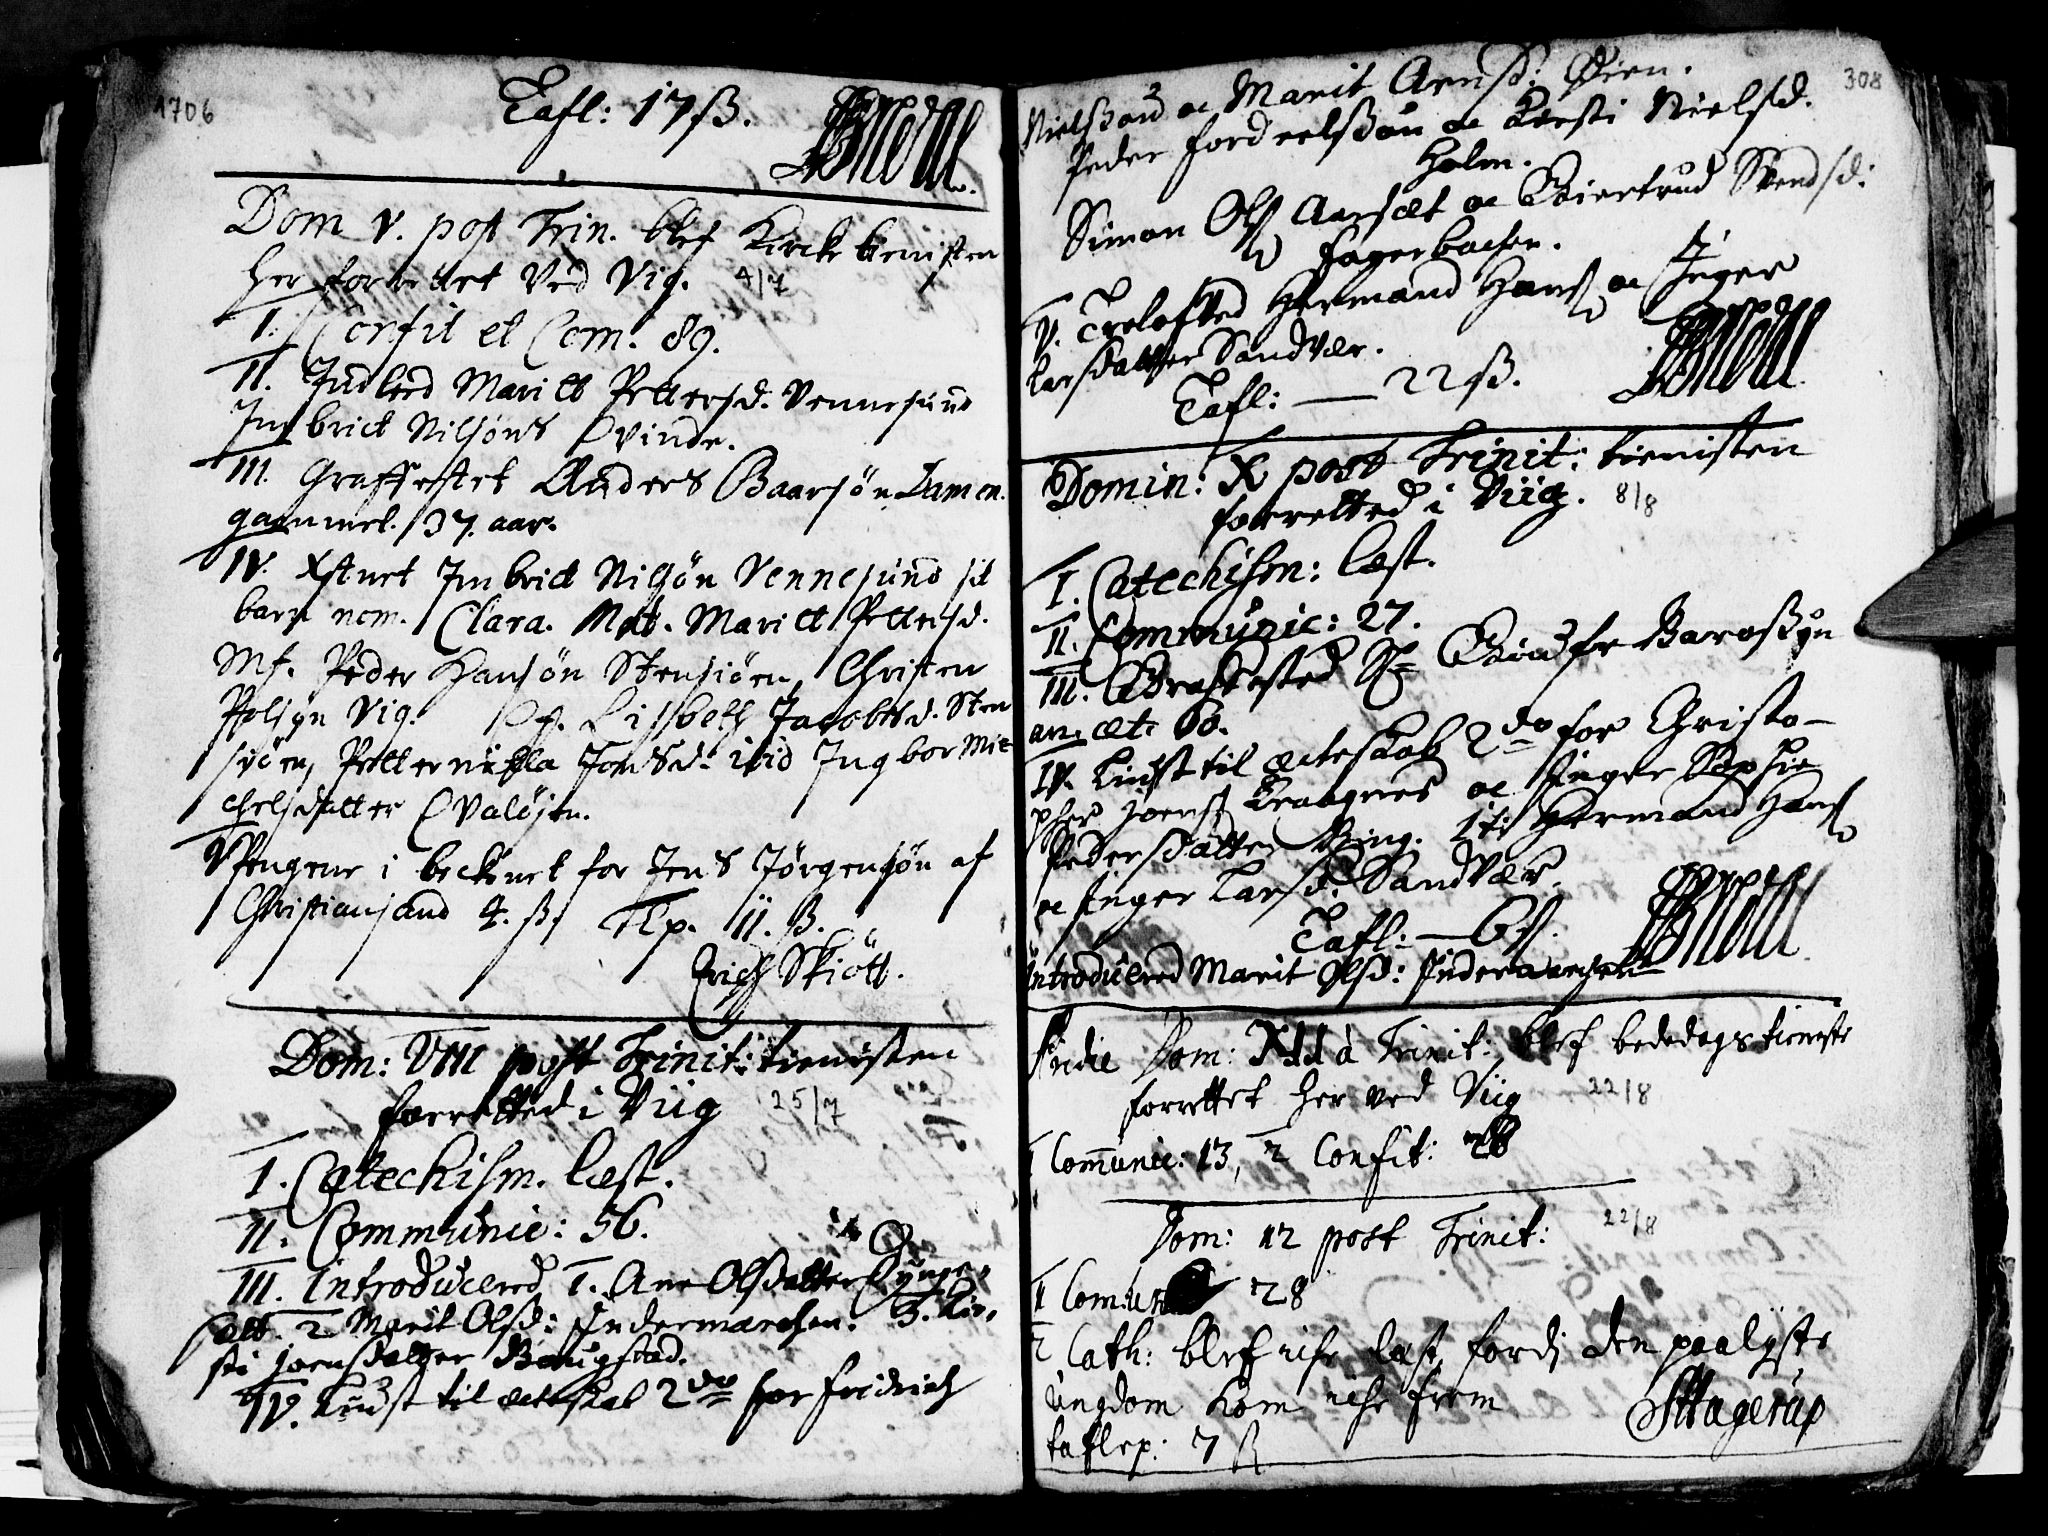 1706
Tafl: 17 ß.
Dom V. post Trin. blef Kirke tienisten
her forrettet Ved Vig. 4/7
I. Confit et Com. 89.
II. Indled Maritt Pettersd. Vennesund
Imbrict Nilsøns Qvinde.
III. Graffestet Anders Baarsøn Lamen.
gammel. 37. aar.
IV. Xstnet Imbrict Nilsøn Vennesund sit
barn nom. Clara. Mat. Maritt Pettersd.
Mf. Peder Hansøn Stensiøen, Christen
Polsøn Vig. Qf. Lisbeth Jacobsd. Sten
siøen, Petternilla Jonsd: ibid Ingbor Mic
chelsdatter Qvaløjen.
V Pengene i beckenet for Jens Jørgensøn af
Christiansand 4. ß. Tlp. 11. ß.
Erich Skiøtt.
Dom: VIII post Trinit: tienisten
forretted i Viig 25/7
I. Catechism. læst.
II. Communic: 56.
III. Introducered 1. Ane Olsdatter Dynge,,
sætt. 2 Marit Olsd: Indermarchen. 3. Kir,,
sti Joensdatter Baugstad.
IV. Liust til ectteskab 2do for Fridrich
308
Nielssøn oc Marit Arnsd: Øien.
Peder Fordeelssøn oc Kirsti Nielsd.
Holm.
Simon Ols Aarsæt oc Giertrud Svendsd:
Fagerbachen.
V. Trolofved Hermand Hans oc Inger
Larsdatter Sandvær.
Tafl: — 22 ß.
Domin: X post Trinit: tienisten
forretted i Viig. 8/8
I. Catechism: læst.
II. Communic: 27.
III. Grafested Baroßøn
an: æt: 60.
IV. Liust til ecteskab 2do for Christo-
pher Joens Kraagnes oc Inger Sophie
Pedersdatter Bing. It: Hermand Hans
oc Inger Larsd: Sandvær.
Tafl: — 6 ß.
Introducered Marit Olsd: Indermarchen
Feria Dom: XIdà Trinit: blef bededags tieneste
forrettet her ved Viig 22/8
1 Communic: 13, 2 Confit:
Dom: 12 post Trinit: 22/8
1 Comun 28
2 Cath: blef icke læst, fordj den paalyste
ungdom kom icke frem
taflep: 7 ß
SHagerup